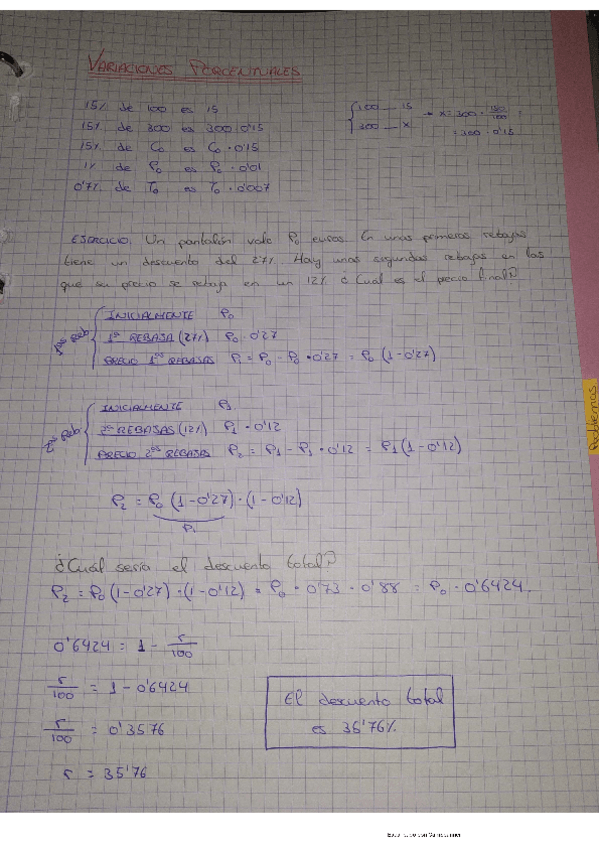 VARIACIONES PORCENTUALES
15% de 100 es 15
15% de 300 es 300·0'15
15% de C₀ es C₀·0'15
1% de P₀ es P₀·0'01
0'7% de T₀ es T₀·0'007
100 — 15 → x = 300 ·
300 — x
= 300·0'15
EJERCICIO. Un pantalón vale P₀ euros. En unas primeras rebajas
tiene un descuento del 27%. Hay unas segundas rebajas en las
que su precio se rebaja en un 12% ¿Cuál es el precio final?
INICIALMENTE P₀
1ª REBAJA (27%) P₀·0'27
PRECIO 1ªˢ REBAJAS P₁ = P₀ - P₀·0'27 = P₀(1-0'27)
INICIALMENTE P₁
2ªˢ REBAJAS (12%) P₁·0'12
PRECIO 2ªˢ REBAJAS P₂ = P₁ - P₁·0'12 = P₁(1-0'12)
P₂ = P₀(1-0'27)·(1-0'12)
P₁
Problemas
¿Cuál sería el descuento total?
P₂ = P₀(1-0'27)·(1-0'12) = P₀·0'73·0'88 = P₀·0'6424.
0'6424 = 1 - r/100
r/100 = 1 - 0'6424
r/100 = 0'3576
r = 35'76
El descuento total
es 35'76%